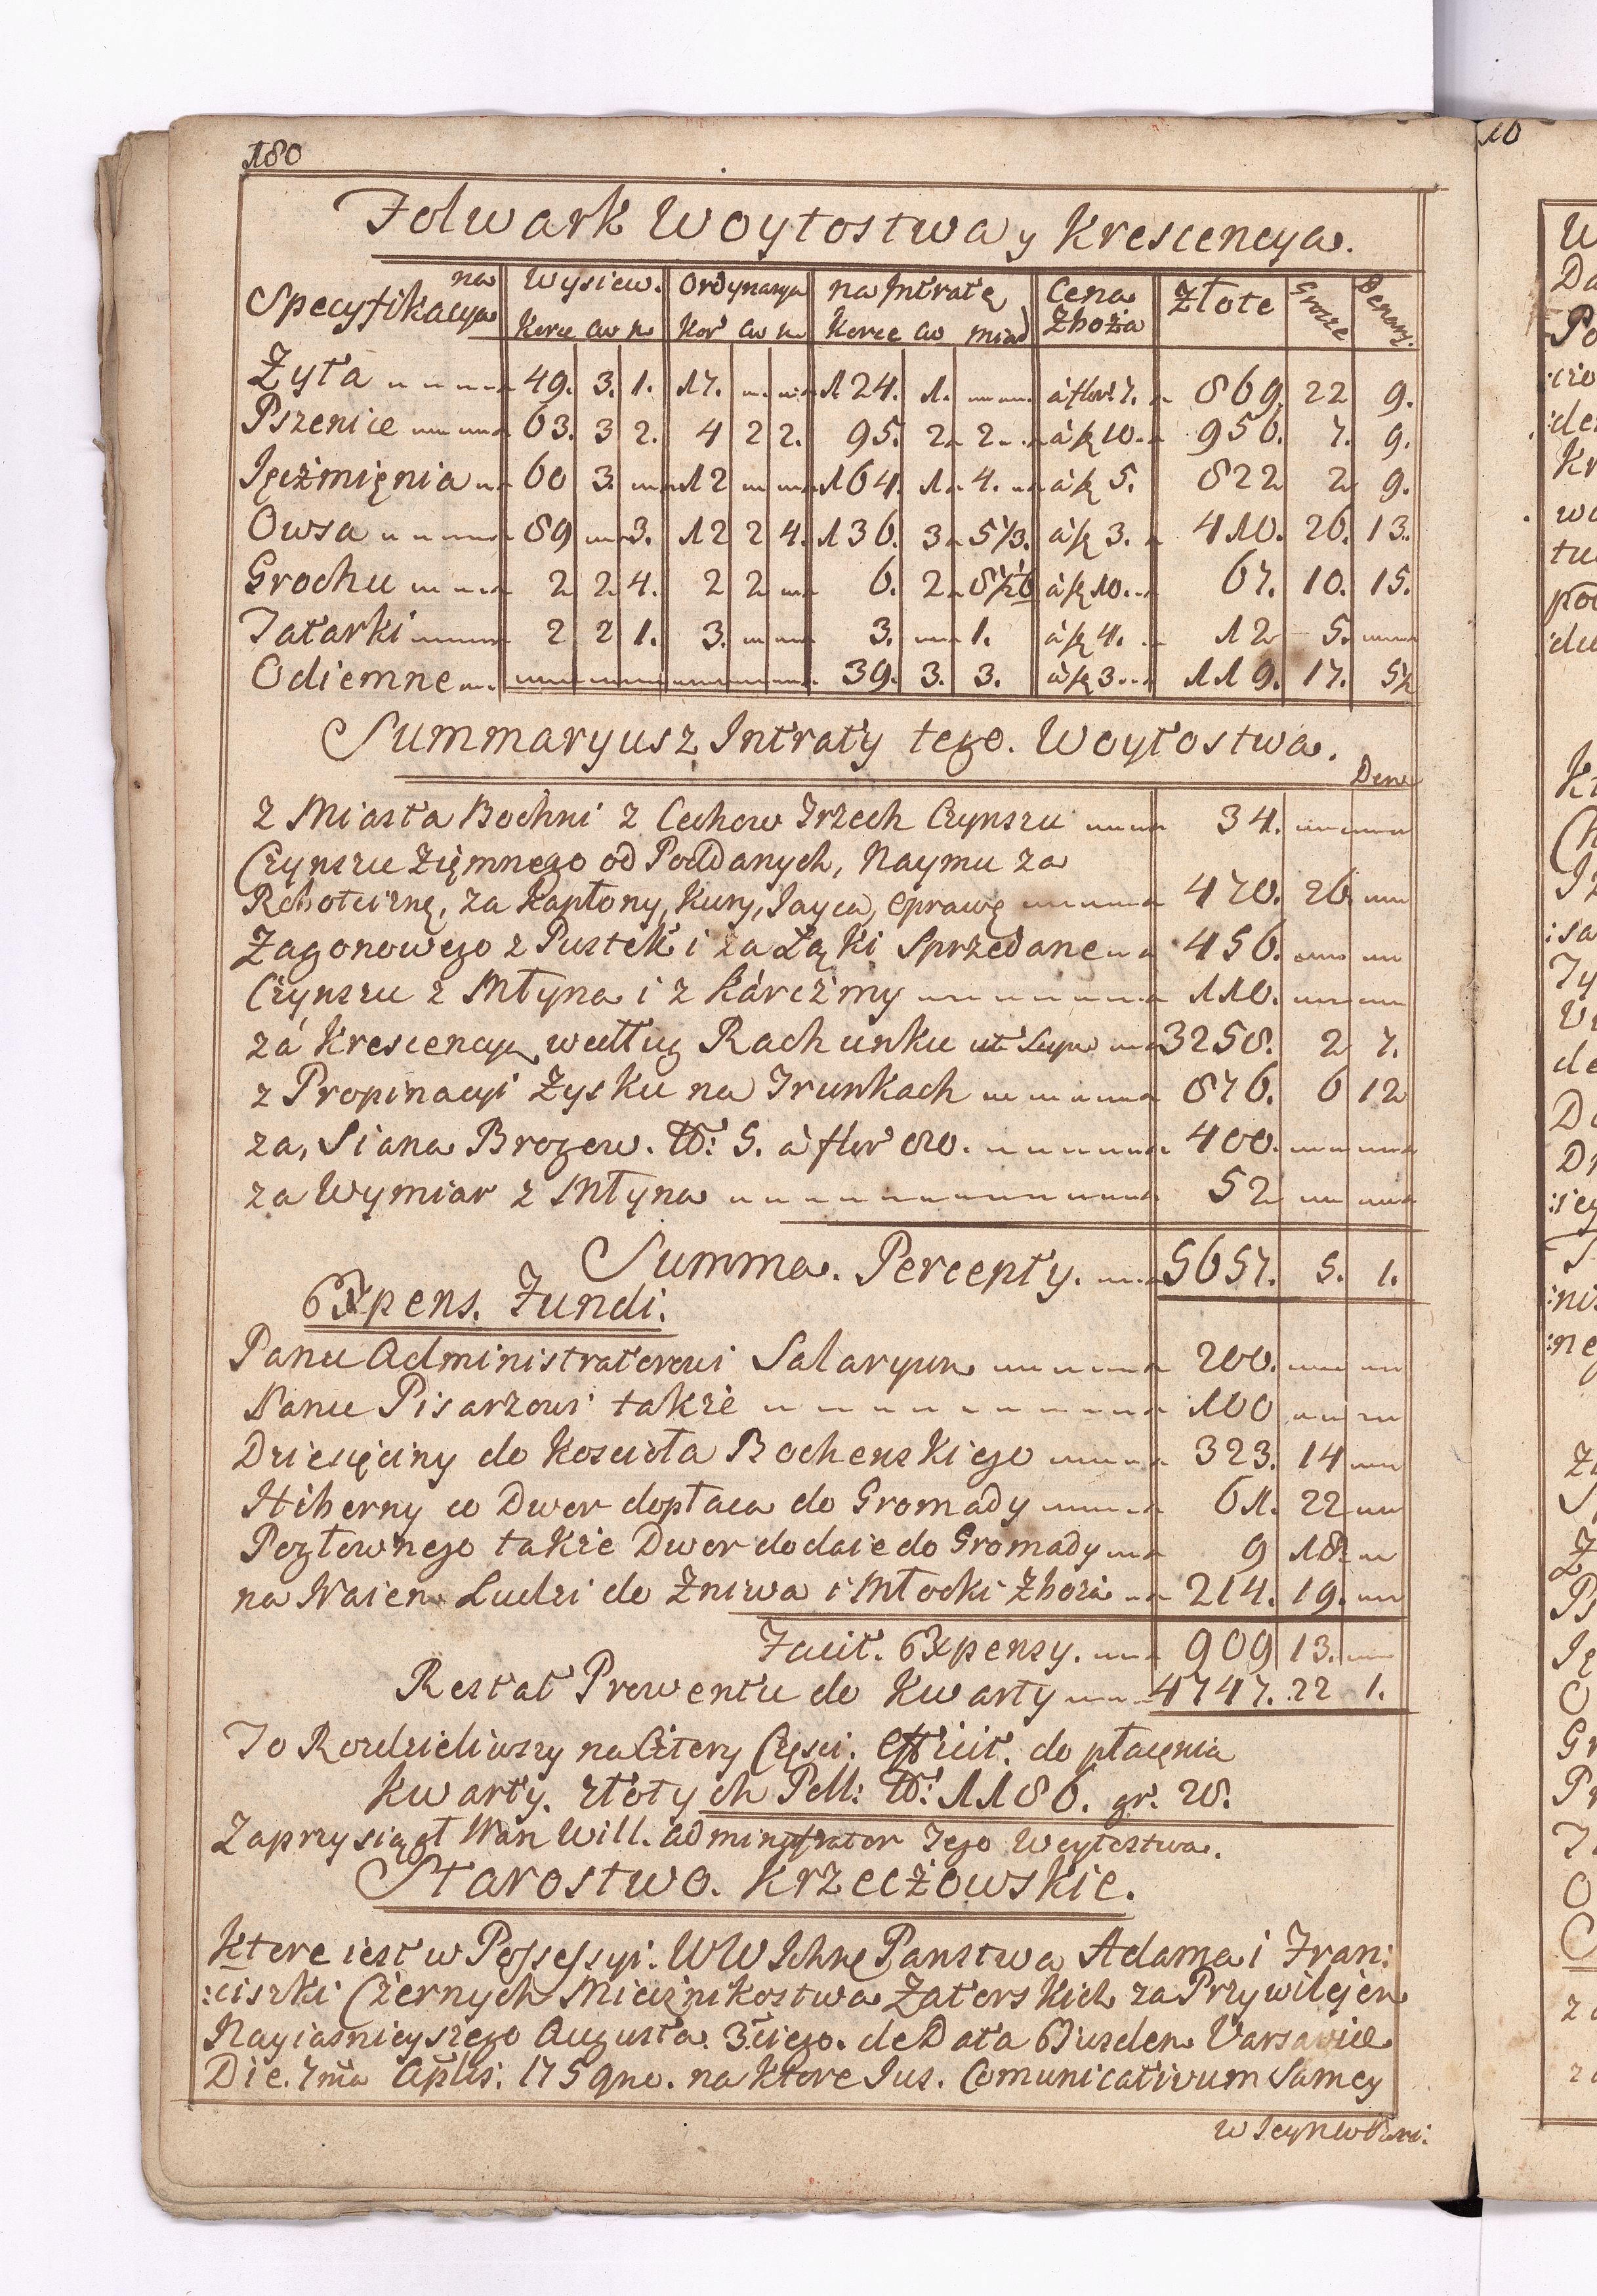 180
Folwark Woytostwa y Krescencya.
Specyfikacya na Wysiew. Ordynarya na Intratę Cena Zboża Złote Grosze Denary.
Korce Kor Korce
Żyta 49. 3. 1. 17. 124. 1. à flor: 7. 869. 22 9.
Pszenice 63. 3 2. 4 2 2. 95. 2 2 à 10. 950. 7. 9.
Jęczmięnia 60 3. 12 164. 1 4. à 5. 822 2 9.
Owsa 89 3. 12 2 4. 136. 3 5 1/3. à 3. 410. 26. 13.
Grochu 2 2. 4. 2 2 6. 2 à 10. 67. 10. 15.
Tatarki 2 2 1. 3. 3. 1. à 4. 12 5.
Odiemne 39. 3. 3. à 3 119. 17. 5
Summaryusz Intraty tego. Woytostwa.
Den
z Miasta Bochni z Cechow Trzech Czynszu 34.
Czynszu Ziemnego od Poddanych, Naymu za
Robociznę, za Kapłony, Kury, Jayca, Oprawę 470. 26
Zagonowego z Pustek i za Łąki Sprzedane 456.
Czynszu z Młyna i z Kárczmy 110.
zá Krescencyą według Rachunku ut Supra 3258. 2 7.
z Propinacyi Zysku na Trunkach 876. 6 12
za, Siana Brogow. No: 5. à flor 80. 400.
za Wymiar z Młyna 52
Summa. Percepty. 5657. 5. 1.
Expens. Fundi.
Panu Administratorowi Salaryum 200.
Panu Pisarzowi także 100
Dziesięciny do Koscioła Bochenskiego 323. 14
Hiberny co Dwor dopłaca do Gromady 61. 22
Pogłownego także Dwor dodaie do Gromady 9 18
na Naiem Ludzi do Żniwa i Młocki Zboża 214. 19.
Facit. Expensy. 909 13.
Restat Prowentu do Kwarty 4747. 22 1.
To Rozdzieliwszy na Cztery Części. Efficit. do płacęnia
Kwarty. złotych Poll: No: 1186. gr. 28.
Zaprzysiągł Wan Will. Administrator Tego Woytostwa.
Starostwo. Krzeczowskie.
Ktore iest w Possessyi. WW Ichm Panstwa Adama i Fran:
:ciszki Czernych Miecznikostwa Zatorskich za Przywilejem
Nayiasnieyszego Augusta 3ciego. de Data Eiusdem Varsaviae
Die. 7ma Aplis: 1759no. na ktore Jus. Comunicativum Samey